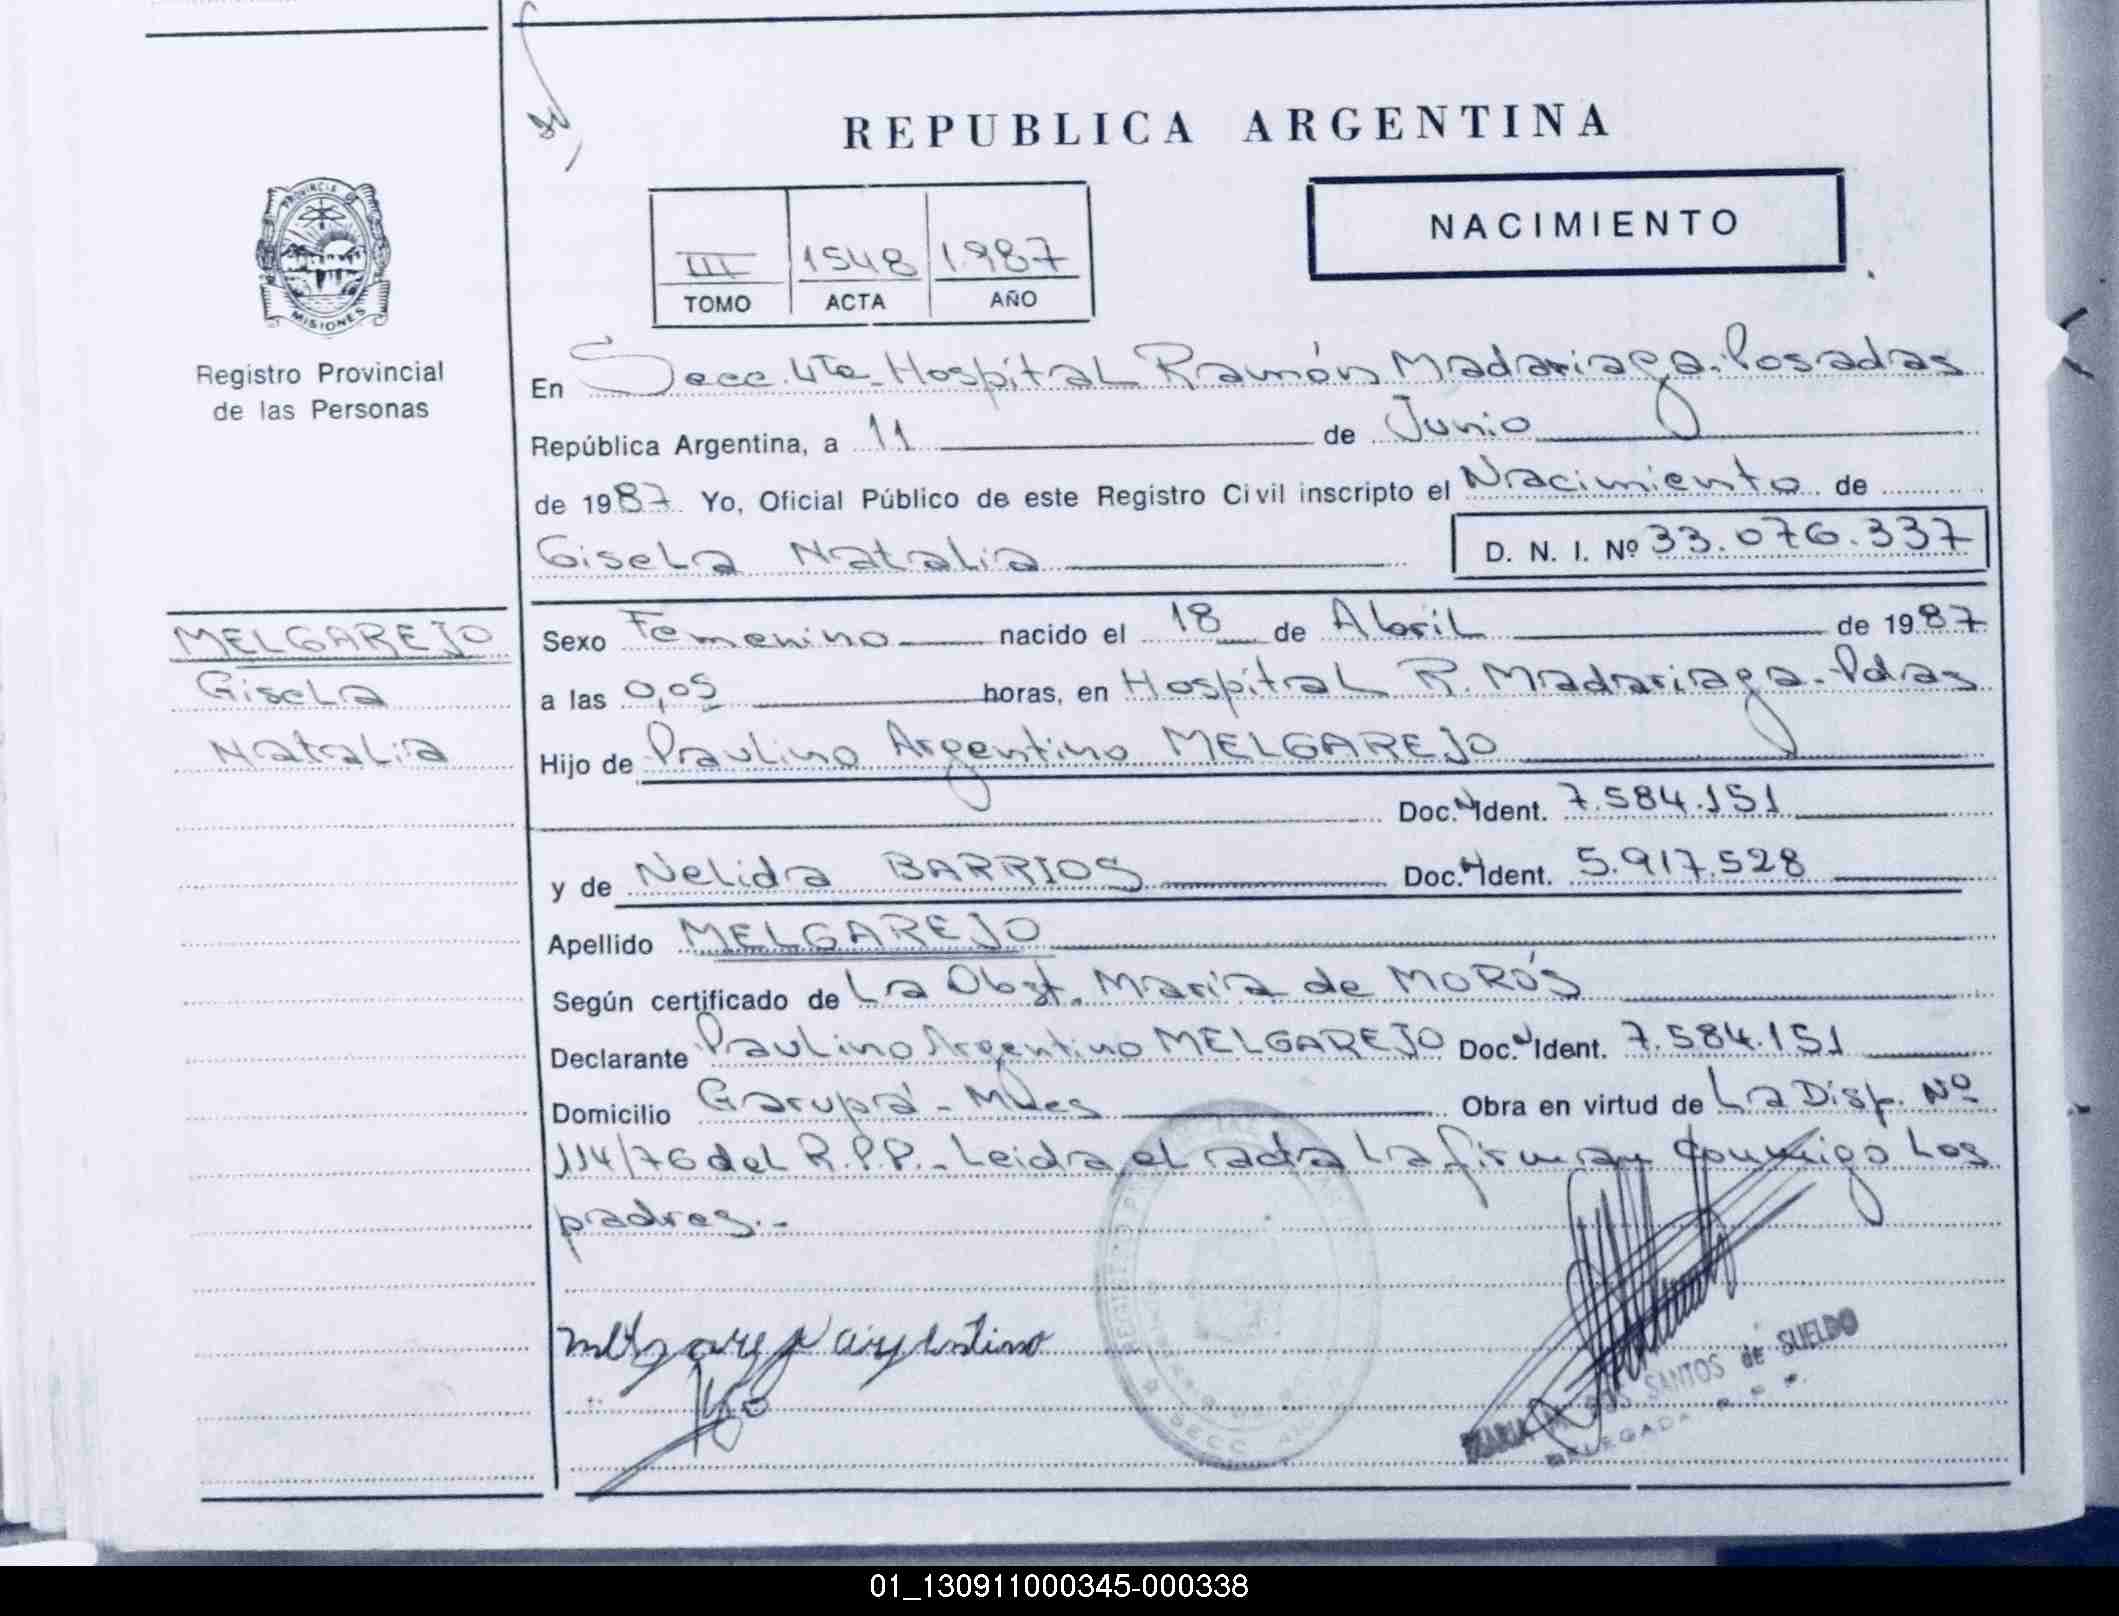 REPUBLICA ARGENTINA
NACIMIENTO
III 1548 1987
TOMO ACTA AÑO
PROVINCIA DE
MISIONES
Registro Provincial
de las Personas
En Secc. 4ta. Hospital Ramón Madariaga. Posadas
República Argentina, a 11 de Junio
de 1987 Yo, Oficial Público de este Registro Civil inscripto el Nacimiento de
Gisela Natalia D. N. I. Nº 33.076.337
MELGAREJO
Gisela
Natalia
Sexo Femenino nacido el 18 de Abril de 1987
a las 0,05 horas, en Hospital R. Madariaga - Pdas
Hijo de Paulino Argentino MELGAREJO
Doc. N Ident. 7.584.151
y de Nelida BARRIOS Doc. N Ident. 5.917.528
Apellido MELGAREJO
Según certificado de La Obst. María de MORÓS
Declarante Paulino Argentino MELGAREJO Doc. N Ident. 7.584.151
Domicilio Garupá - Mnes Obra en virtud de La Disp. Nº
114/76 del R.P.P. - Leida el acta la firman conmigo los
padres. -
argentino
SANTOS de SUELDO
DELEGADA
01_130911000345-000338